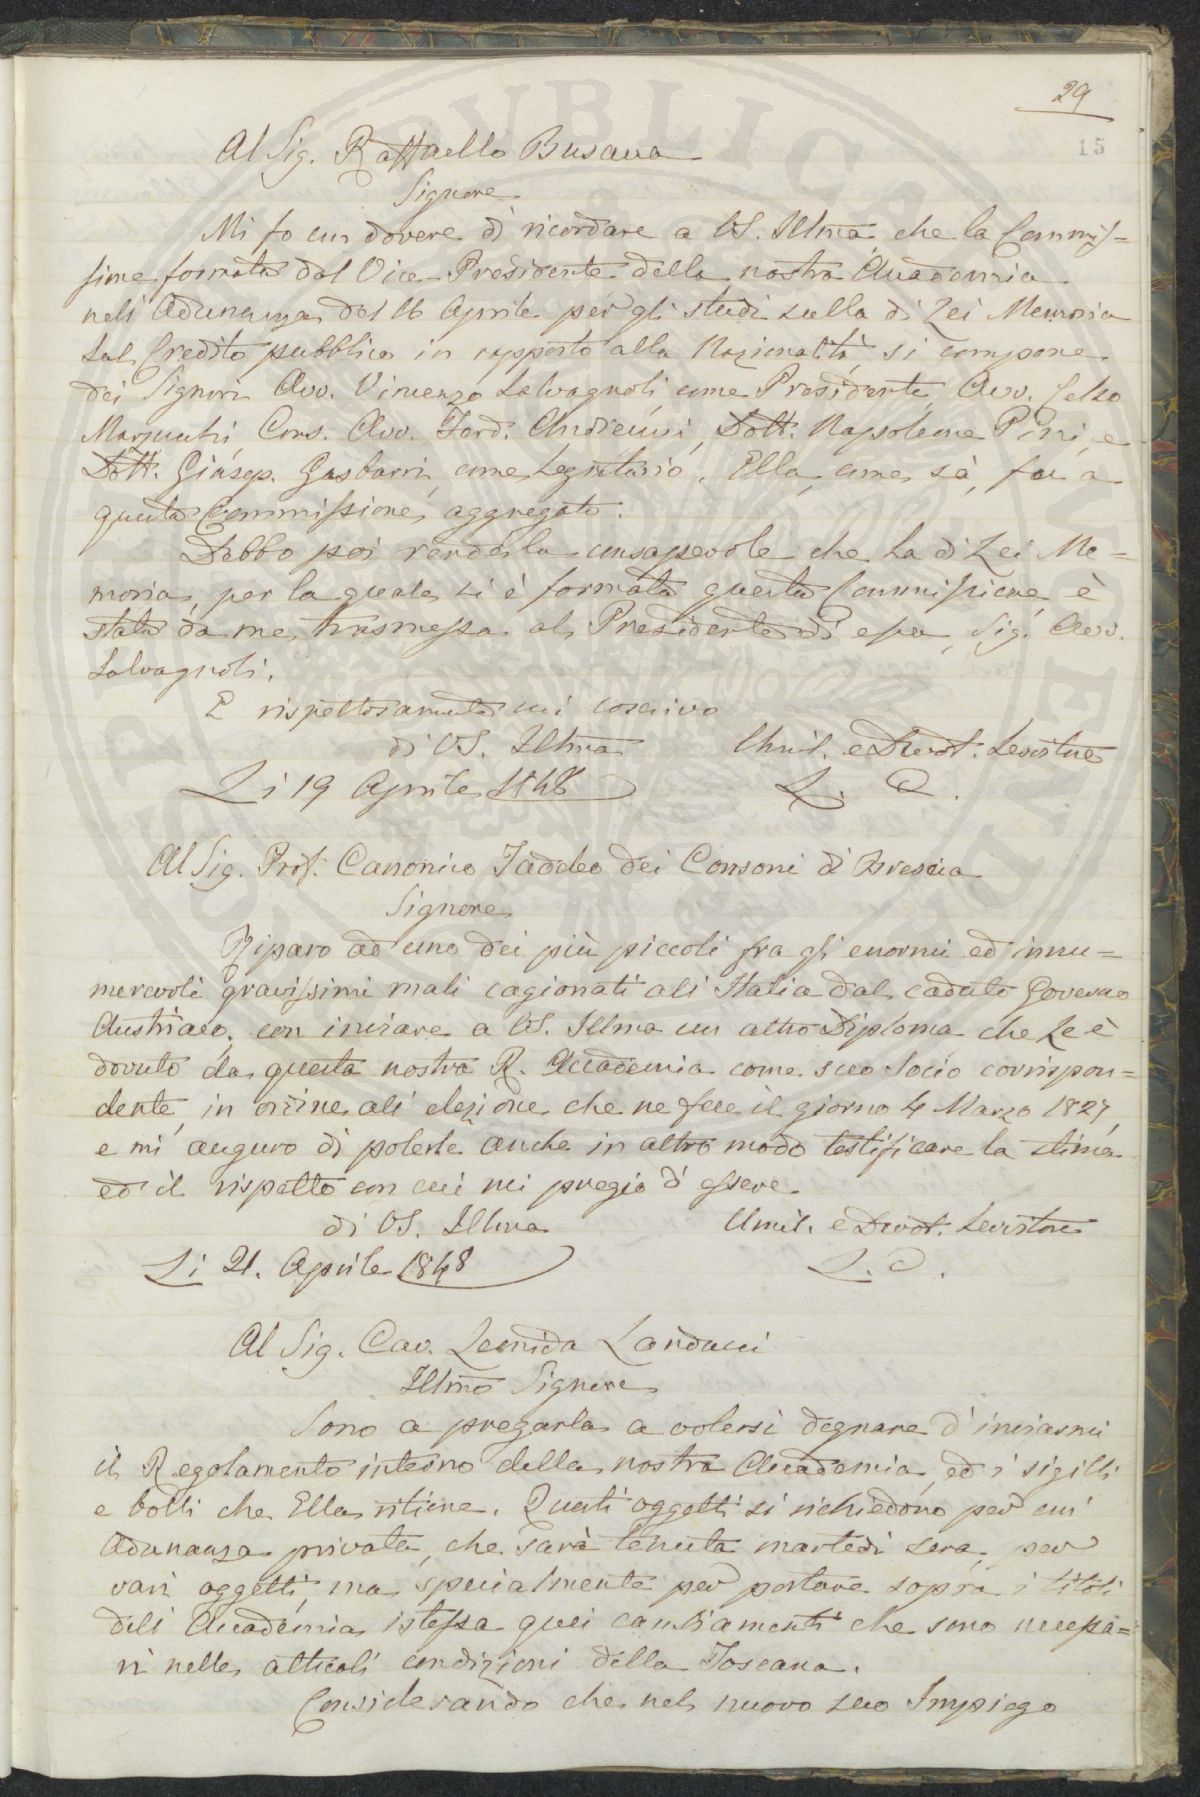 29
15
Al Sig. Raffaello Busacca
Signore
Mi fo un dovere di ricordare a VS. Illma che la Commis=
sione formata dal Vice-Presidente della nostra Accademia
nell'Adunanza del 16 Aprile per gli studi sulla di Lei Memoria
sul Credito pubblico in rapporto alla Nazionalità, si compone
dei Signori Avv. Vincenzo Salvagnoli come Presidente, Avv. Celso
Marzucchi, Cons. Avv. Ferd. Andreucci, Dott. Napoleone Pini, e
Dott. Giusep. Gasbarri, come Segretario. Ella, come sà, fu a
questa Commissione aggregato.
Debbo poi renderla consapevole che la di Lei Me=
moria, per la quale si è formata questa Commissione, è
stata da me trasmessa al Presidente di essa, Sig. Avv.
Salvagnoli.
E rispettosamente mi soscrivo
di VS. Illma Umil. e Devot. Servitore
Li 19 Aprile 1848 L. C.
Al Sig. Prof. Canonico Taddeo dei Consoni di Brescia
Signore
Riparo ad uno dei più piccoli fra gli enormi ed innu=
merevoli gravissimi mali cagionati all'Italia dal caduto Governo
Austriaco, con inviare a VS. Illma un altro Diploma che Le è
dovuto da questa nostra R. Accademia come suo Socio corrispon=
dente, in ordine all'elezione che ne fece il giorno 4 Marzo 1827,
e mi auguro di poterle anche in altro modo testificare la stima
ed il rispetto con cui mi pregio d'essere
di VS. Illma Umil. e Devot. Servitore
Li 21. Aprile 1848 L. C.
Al Sig. Cav. Leonida Landucci
Illmo Signore
Sono a pregarla a volersi degnare d'inviarmi
il Regolamento interno della nostra Accademia, ed i sigilli
e bolli che Ella ritiene. Questi oggetti si richiedono per un'
Adunanza privata, che sarà tenuta martedì sera, per
vari oggetti, ma specialmente per portare sopra i titoli
dell'Accademia istessa quei cambiamenti che sono necessa=
ri nelle attuali condizioni della Toscana.
Considerando che nel nuovo suo Impiego